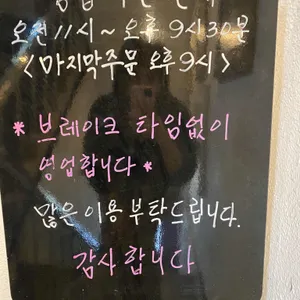 오전 11시~오후 9시30분
<마지막주문 오후9시>
* 브레이크 타임없이
영업합니다 *
많은 이용 부탁드립니다.
감사합니다